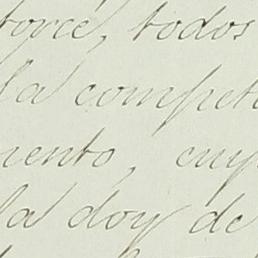 torce, todos
la compet
iento, cuy
la doy de